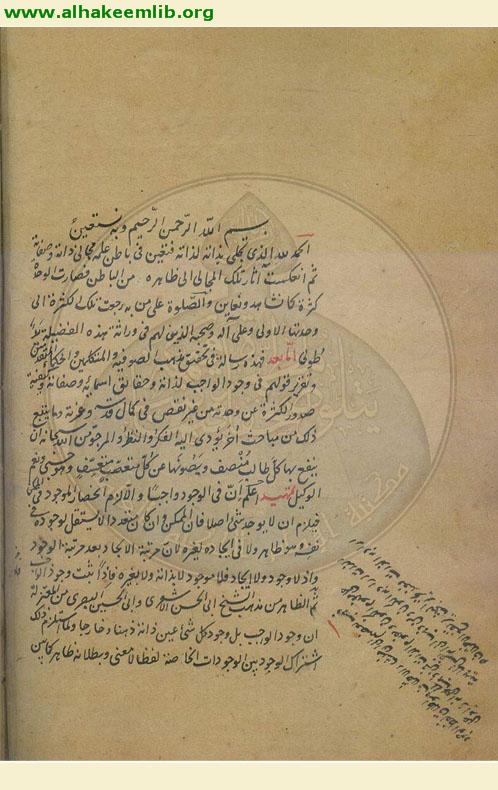 www.alhakeemlib.org
بسم الله الرحمن الرحيم وبه نستعين
الحمد لله الذي تجلى بذاته لذاته فتعين في باطن علمه مجالي ذاته وصفاته
ثم انعكست آثار تلك المجالي الى ظاهره من الباطن فصارت الوحدة
كثرة كما تشاهد وتعاين والصلوة على من به رجعت تلك الكثرة الى
وحدتها الاولى وعلى آله وصحبه الذين لهم في وراثة هذه الفضيلة يد
طولى اما بعد فهذه رسالة في تحقيق مذهب الصوفية والمتكلمين والحكماء المتقدمين
وتقرير قولهم في وجود الواجب لذاته وحقائق اسمائه وصفاته وكيفية
صدور الكثرة عن وحدته من غير نقص في كمال قدسه وعزته وما يتبع
ذلك من مباحث أخر يؤدي اليه الفكر والنظر والمرجو من الله سبحانه ان
ينفع بها كل طالب منصف ويصونها عن كل متعصب متعسف وهو حسبي ونعم
الوكيل تمهيد اعلم ان في الوجود واجبا والا لزم انحصار الموجود في الممكن
فيلزم ان لا يوجد شئ اصلا فان الممكن وان كان متعددا لا يستقل بوجوده في
نفسه وهو ظاهر ولا في ايجاده لغيره لان مرتبة الايجاد بعد مرتبة الوجود
واذ لا وجود ولا ايجاد فلا موجود لا بذاته ولا بغيره فاذا ثبت وجود الواجب
ثم الظاهر من مذهب الشيخ ابى الحسن الاشعرى وابى الحسين البصرى من المعتزلة
ان وجود الواجب بل وجود كل شئ عين ذاته ذهنا وخارجا ولما استلزم ذلك
اشتراك الوجود بين الوجودات الخاصة لفظا لا معنى وبطلانه ظاهر كما بين